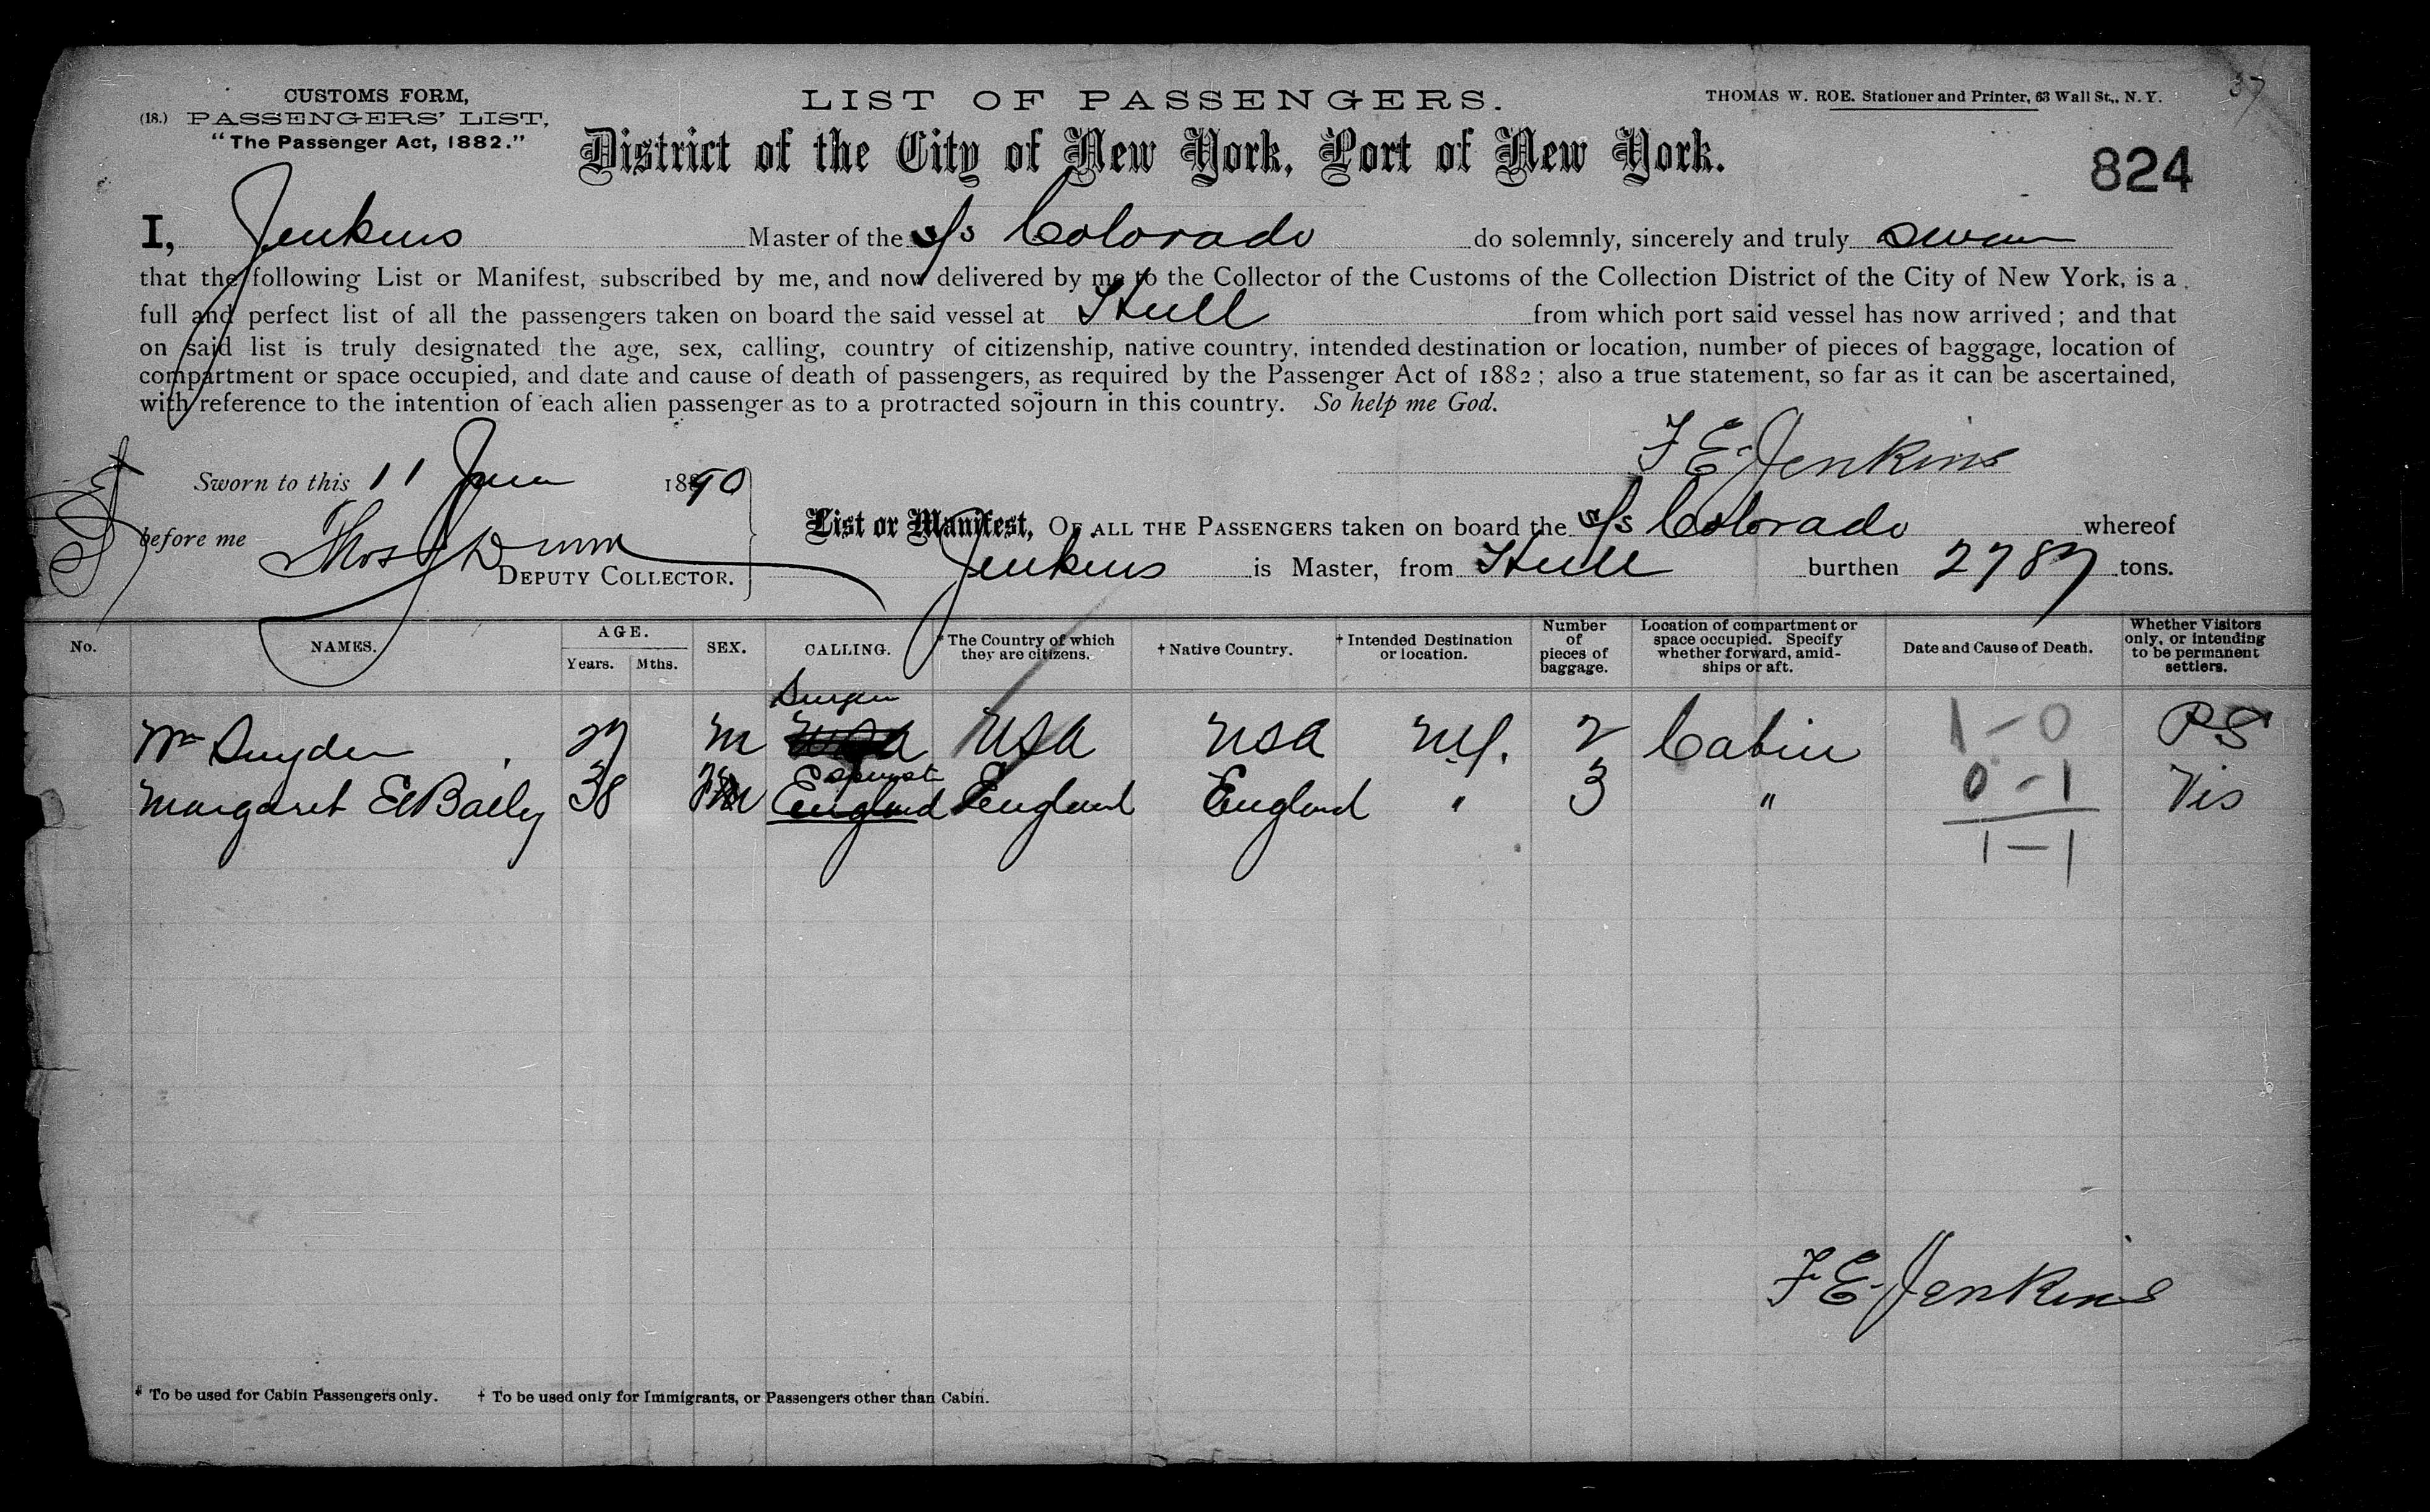 37
CUSTOMS FORM,
(18.) PASSENGERS' LIST,
"The Passenger Act, 1882."
LIST OF PASSENGERS.
THOMAS W. ROE. Stationer and Printer, 63 Wall St., N.Y.
District of the City of New York, Port of New York.
824
I, Jenkins Master of the s/s Colorado do solemnly, sincerely and truly swear
that the following List or Manifest, subscribed by me, and now delivered by me to the Collector of the Customs of the Collection District of the City of New York, is a
full and perfect list of all the passengers taken on board the said vessel at Hull from which port said vessel has now arrived; and that
on said list is truly designated the age, sex, calling, country of citizenship, native country, intended destination or location, number of pieces of baggage, location of
compartment or space occupied, and date and cause of death of passengers, as required by the Passenger Act of 1882; also a true statement, so far as it can be ascertained,
with reference to the intention of each alien passenger as to a protracted sojourn in this country. So help me God.
F E Jenkins
Sworn to this 11 June 1890
before me Thos Dunn
DEPUTY COLLECTOR.
List or Manifest, OF ALL THE PASSENGERS taken on board the s/s Colorado whereof
Jenkins is Master, from Hull burthen 2787 tons.
No. NAMES. AGE. Years. Mths. SEX. CALLING. * The Country of which they are citizens. † Native Country. † Intended Destination or location. Number of pieces of baggage. Location of compartment or space occupied. Specify whether forward, amidships or aft. Date and Cause of Death. Whether Visitors only, or intending to be permanent settlers.
Wm Snyder 27 m USA USA NY. 2 Cabin 1-0 PS
Margaret E Baily 38 England England England " 3 " 0-1 Vis
1-1
F E Jenkins
* To be used for Cabin Passengers only. † To be used only for Immigrants, or Passengers other than Cabin.